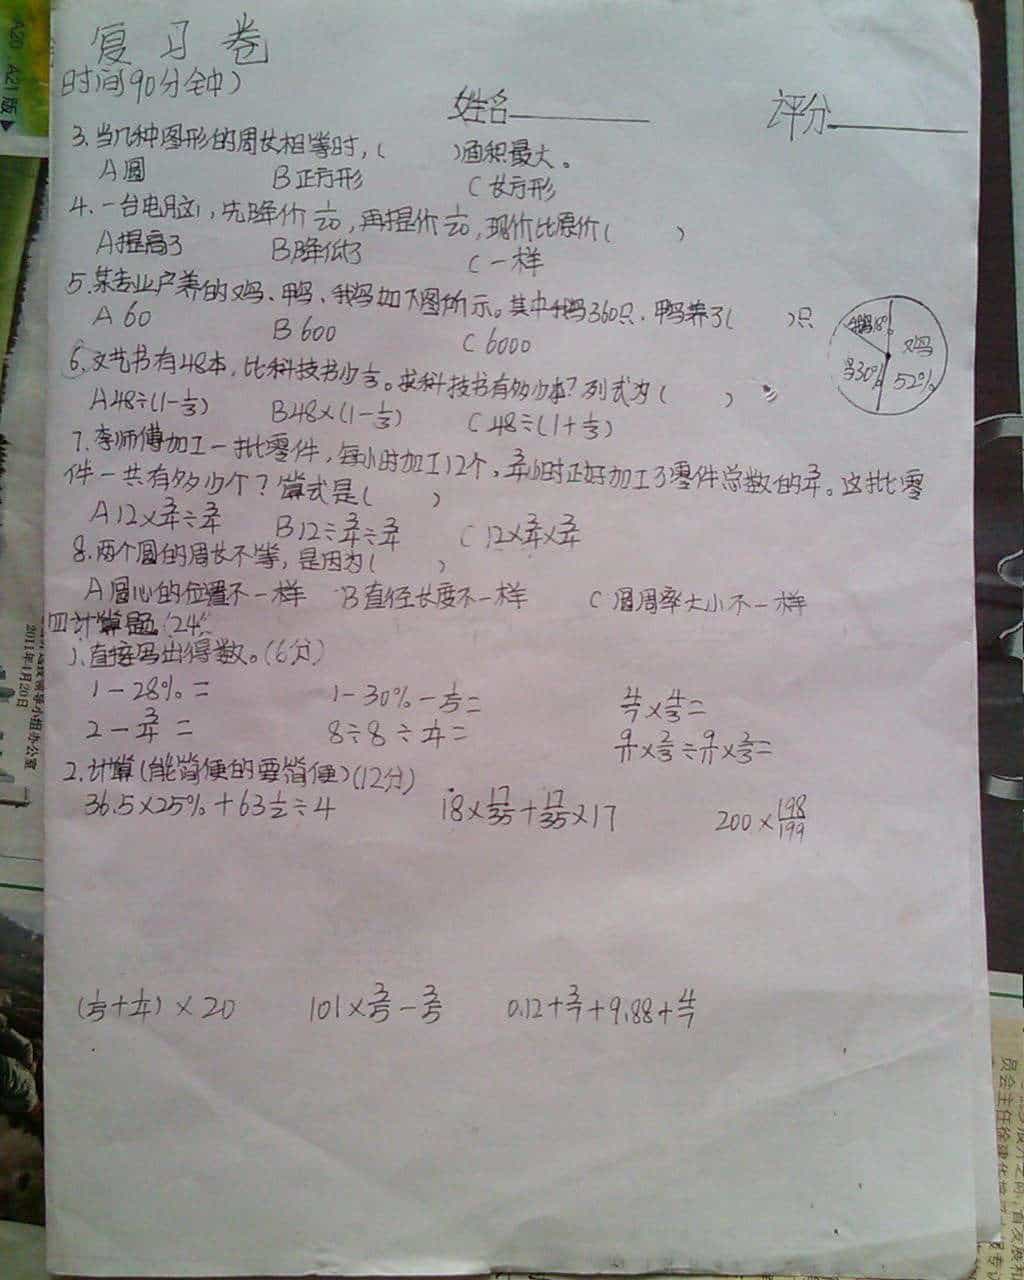 复习卷
时间(90分钟)
姓名________ 评分________
3.当几种图形的周长相等时,( )面积最大。
A圆 B正方形 C长方形
4.一台电脑,先降价1/20,再提价1/20,现价比原价( )
A提高了 B降低了 C一样
5.某专业户养的鸡、鸭、鹅如下图所示。其中鹅360只.鸭养了( )只
A 60 B 600 C 6000
鹅18%
鸡
52%
30%
6.文艺书有48本,比科技书少1/3。求科技书有多少本?列式为( )
A 48÷(1-1/3) B 48×(1-1/3) C 48÷(1+1/3)
7.李师傅加工一批零件,每小时加工12个,3/4小时正好加工了零件总数的3/4。这批零
件一共有多少个?算式是( )
A 12×3/4÷3/4 B 12÷3/4÷3/4 C 12×3/4×3/4
8.两个圆的周长不等,是因为( )
A圆心的位置不一样 B直径长度不一样 C圆周率大小不一样
四计算题(24
1.直接写出得数。(6分)
1-28%= 1-30%-1/5= 4/7×4/3=
2-3/4= 8÷8÷1/4= 9/11×2/3÷9/11×2/3=
2.计算(能简便的要简便)(12分)
36.5×25%+63 1/2÷4 18×17/35+17/35×17 200×198/199
(1/5+1/4)×20 101×3/5-3/5 0.12+3/7+9.88+4/7
A20 A21版
2011年4月20日